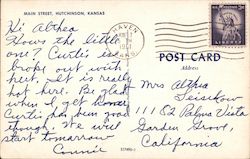 MAIN STREET, HUTCHINSON, KANSAS
Hi Althea
Hows the little
one? Curtis is
pooped out with
heat. It is really
hot here. Be glad
when I get home
Curtis has been good
though. We will
start tomorrow
Connie
HAVEN
POST CARD
Address
Mrs Althea
11182 Palma Vista
Garden Grove,
California